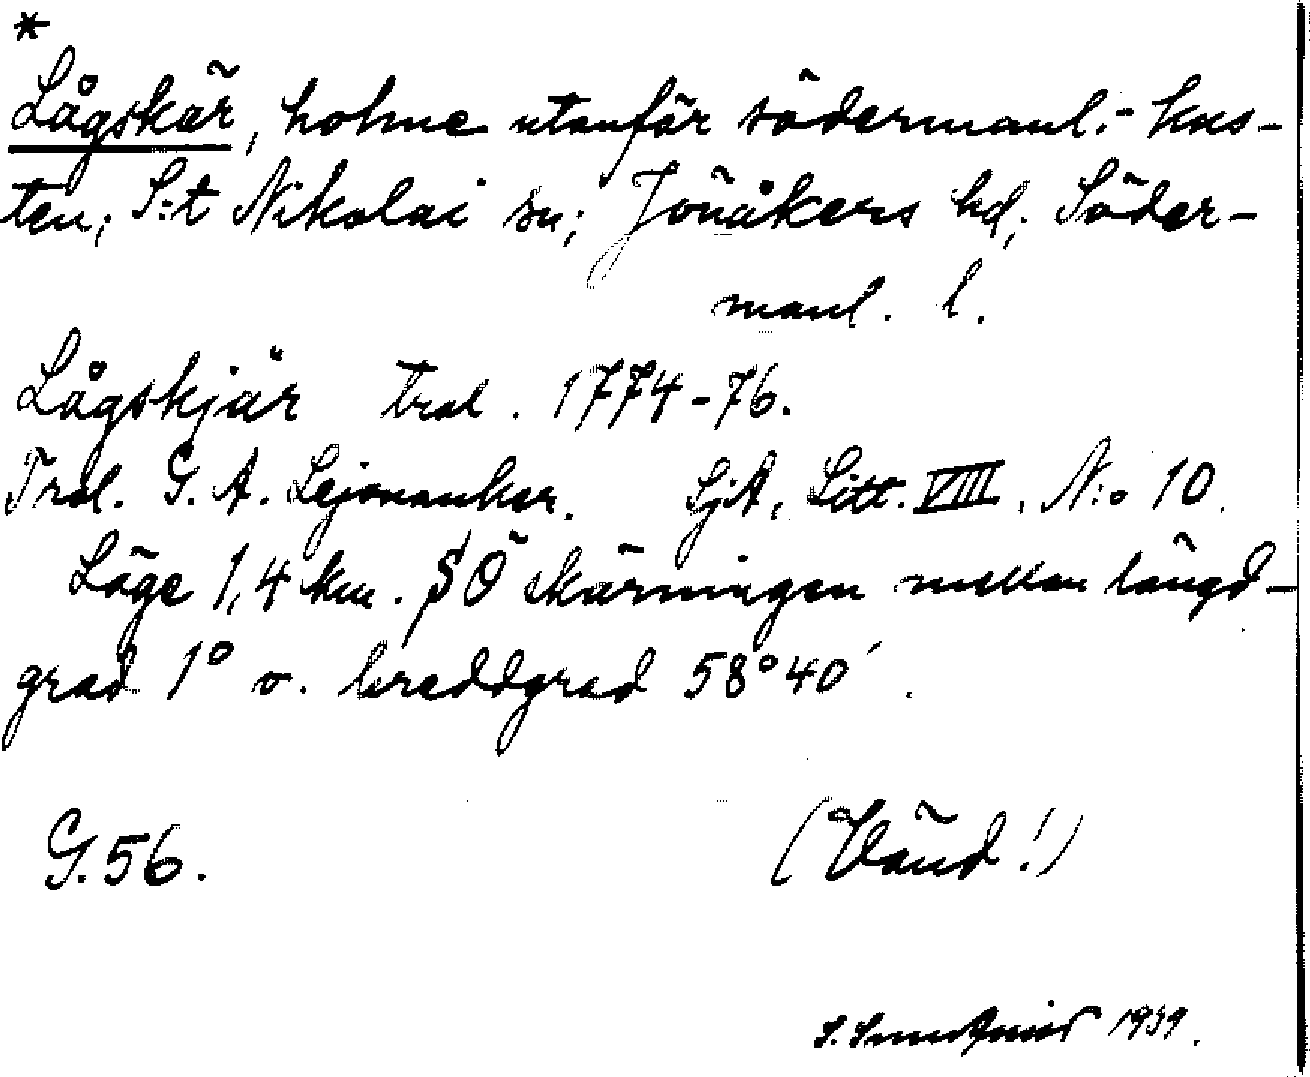 *
Lågskär, holme utanför södermanl.- kus-
ten; S:t Nikolai sn; Jönåkers hd; Söder-
manl. l.
Lågskjär trol. 1774-76.
Trol. G. A. Lejonankar. SjA, Litt. VIII. N:o 10.
Läge 1,4 km. SO skärningen mellan längd-
grad 1° o. breddgrad 58°40′.
G. 56.
(Vänd!)
S. 1939.